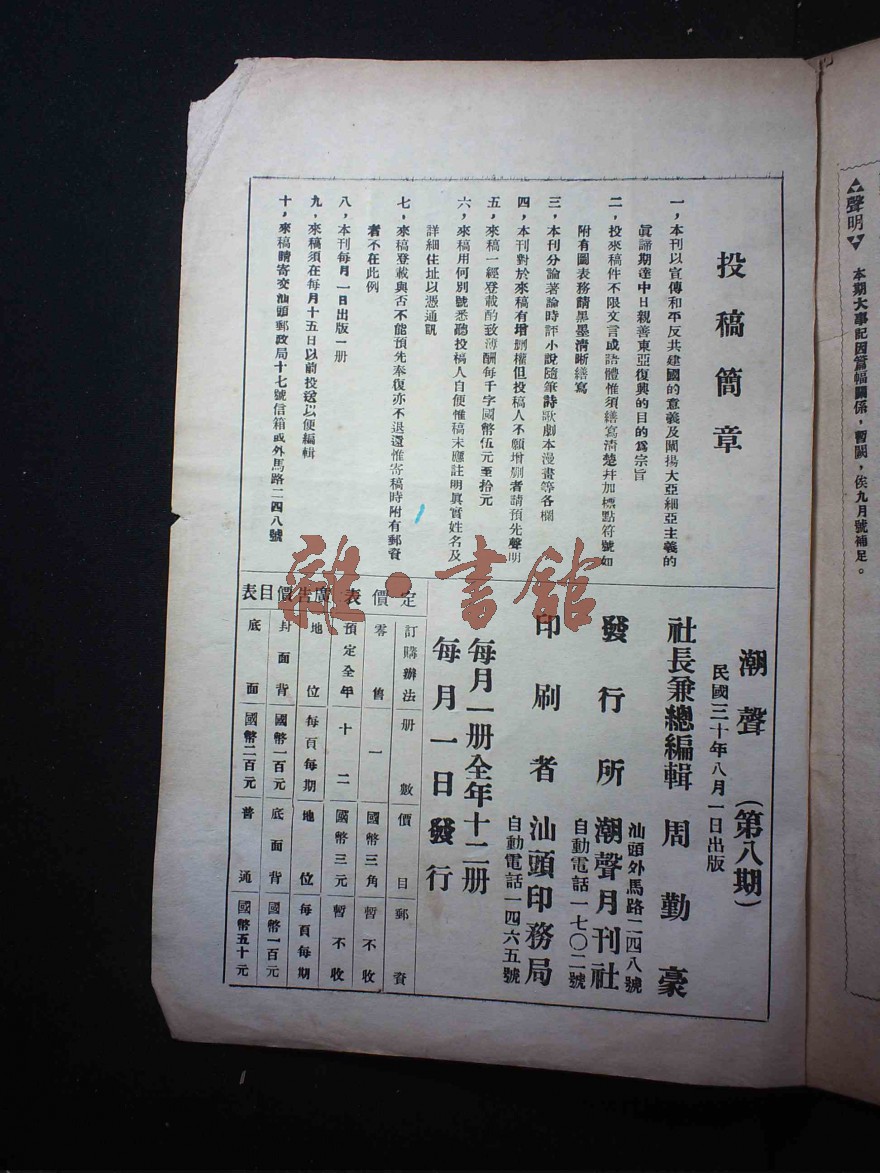 投稿簡章
一，本刊以宣傳和平反共建國的意義及闡揚大亞細亞主義的
眞諦期達中日親善東亞復興的目的爲宗旨
二，投來稿件不限文言或語體惟須繕寫清楚幷加標點符號如
附有圖表務請黑墨清晰繕寫
三，本刊分論著論時評小說隨筆詩歌劇本漫畫等各欄
四，本刊對於來稿有增删權但投稿人不願增删者請預先聲明
五，來稿一經登載酌致薄酬每千字國幣伍元至拾元
六，來稿用何別號悉聽投稿人自便惟稿末應註明眞實姓名及
詳細住址以憑通訊
七，來稿登載與否不能預先奉復亦不退還惟寄稿時附有郵資
者不在此例
八，本刊每月一日出版一册
九，來稿須在每月十五日以前投送以便編輯
十，來稿請寄交汕頭郵政局十七號信箱或外馬路二四八號
潮聲（第八期）
民國三十年八月一日出版
社長兼總編輯 周勤豪
汕頭外馬路二四八號
發行所 潮聲月刊社
自動電話一七〇二號
印刷者 汕頭印務局
自動電話一四六五號
每月一册全年十二册
每月一日發行
定價表
訂購辦法 册數 價目 郵資
零售 一 國幣三角 暫不收
預定全年 十二 國幣三元 暫不收
廣告價目表
地位 每頁每期 地位 每頁每期
封面背 國幣一百元 底面背 國幣一百元
底面 國幣二百元 普通 國幣五十元
聲明
本期大事記因篇幅關係，暫闕，俟九月號補足。
雜·書館